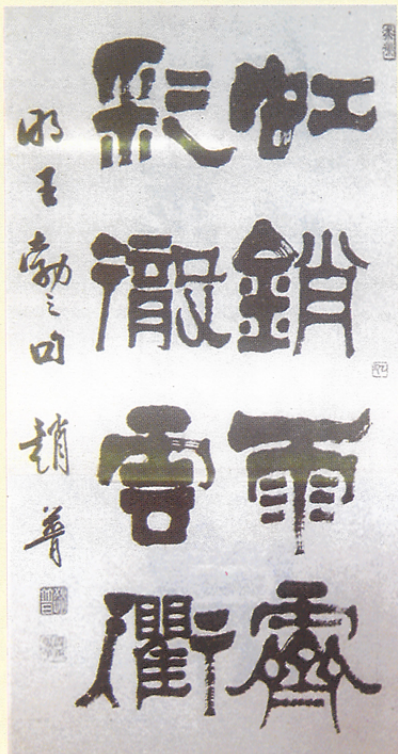 虹銷雨霽
彩徹雲衢
明王勃之句 趙普